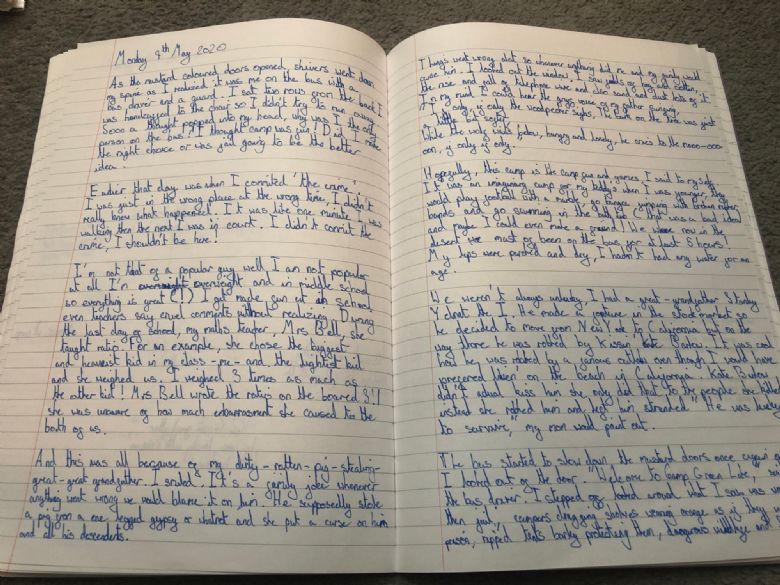 Monday 4th May 2020
As the mustard coloured doors opened shivers went down
my spine as I realized it was me on the bus with a
bus driver and a guard. I sat two rows from the back I
was handcuffed to the chair so I didn't try to run away.
Sooo a thought popped into my head, why was I the only
person on the bus? I thought camp was fun! Did I make
the right choice or was jail going to be the better
idea.
Earlier that day was when I comited 'the crime'.
I was just in the wrong place at the wrong time, I didn't
really knew what happened. It was like one minute I was
walking then the next I was in court. I didn't comit the
crime, I shouldn't be here!
I'm not that of a popular guy well I am not popular
at all I'm overweight and in middle school
so everything is great (!) I get made fun of at school
even teachers say cruel comments without realizing. During
the last day of school, my maths teacher, Mrs Bell, she
taught ratio. For an example, she chose the biggest
and heaviest kid in my class -me- and the lightest kid
and she weighed us. I weighed 3 times as much as
the other kid! Mrs Bell wrote the ratio on the board 3:1
she was unaware of how much embarassment she caused to the
both of us.
And this was all because of my dirty-rotten-pig-stealing-
great-great grandfather. I smiled. It's a family joke whenever
anything went wrong we would blame it on him. He supposedly stole
a pig from a one legged gypsy or whatnot and she put a curse on him
and all his descendents.
Things went wrong alot so whenever anything bad me and my family would
curse him. I looked out the window, I saw fields of cotton,
the rise and fall of telephone wire and also sand and dust lots of it.
In my mind I could hear the gruff voice of my father singing,
"If only, if only the woodpecker sighs, the bark on the tree was just
a little bit softer,
While the wolf waits below, hungry and lonely, he cries to the mooo-ooo-
oon, if only if only.
Hopefully, this camp is the camp fun and games, I said to myself.
It was an imaginary camp for my teddy's when I was younger, they
would play football with a marble, go bungee jumping with broken rubber
bands and go swimming in the bath tub (that was a bad idea)
and maybe I could even make a friend! We were now in the
desert must of been on the bus for at least 8 hours!
My lips were parched and dry, I hadn't had any water for an
age.
We weren't always unlucky, I had a great-grandfather Stanley
Yelnat the I. He made a fortune in the stock market so
he decided to move from New York to California but on the
way there he was robbed by Kissin' Kate Barlow. It was cool
how he was robbed by a famous outlaw even though I would have
preferred livin' on the beach in California. Kate Barlow
didn't actual kiss him she only did that to the people she killed
instead she robbed him and left him stranded. "He was lucky
to survive," my mom would point out.
The bus started to slow down, the mustard doors once again
I looked out of the door. "Welcome to Camp Green Lake," said
the bus driver. I stepped off looked around what I saw was
then, campers dragging shovels wearing orange as if they
prison, ripped tents barely protecting them, dangerous